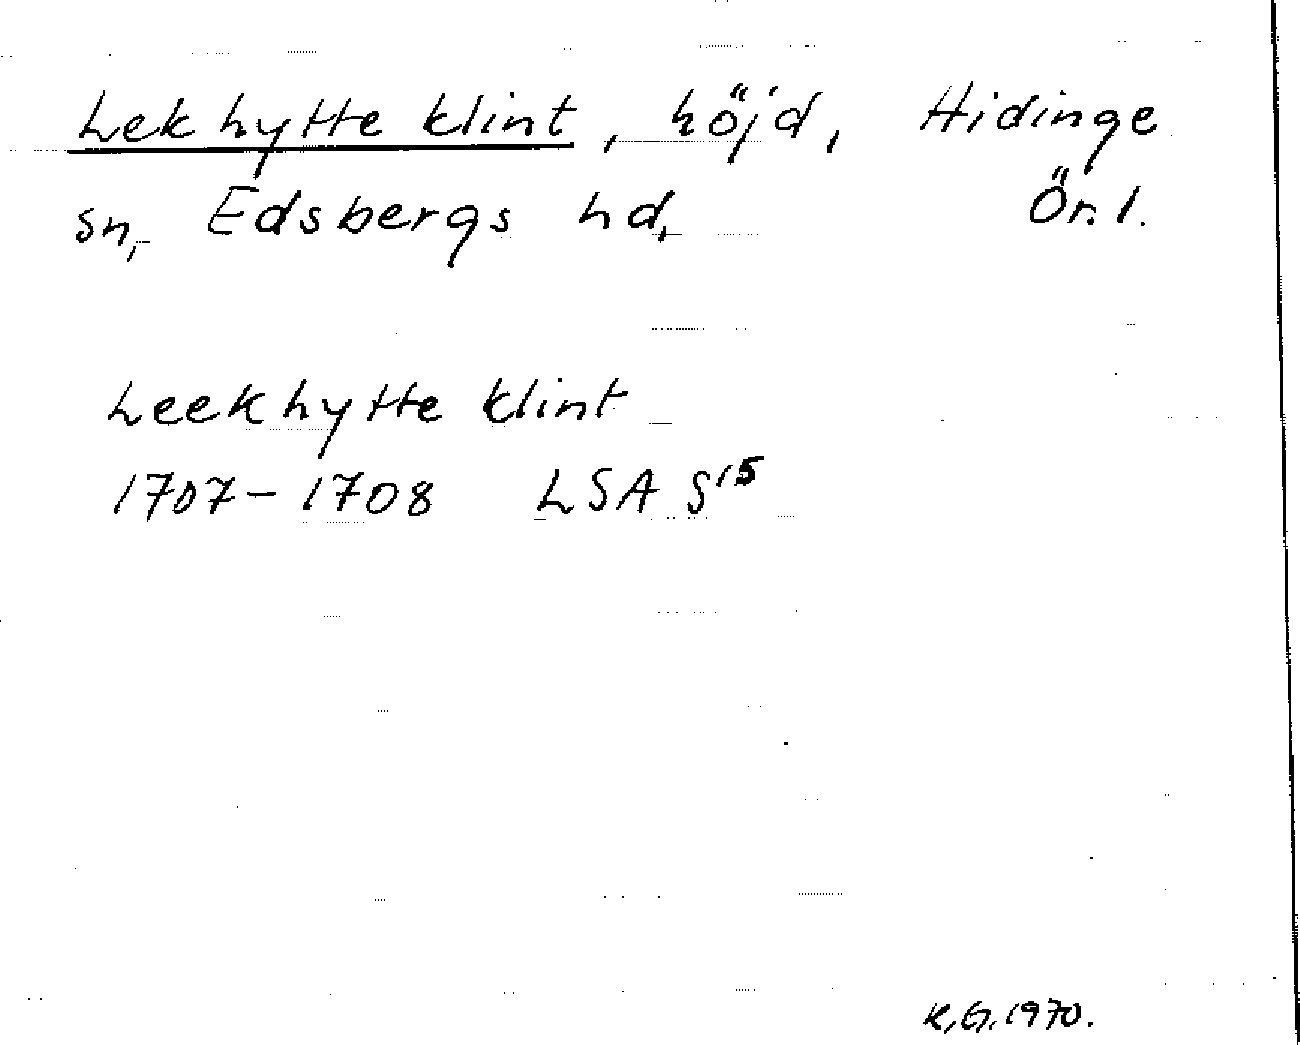 Lekhytte klint, höjd, Hidinge
sn, Edsbergs hd, Ör. l.
Leekhytte klint
1707-1708 LSA S15
K.G. 1970.